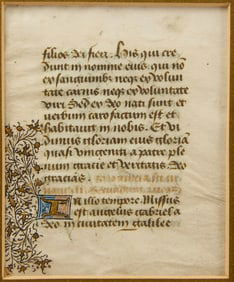 filios dei fieri. His qui cre
dunt in nomine eius qui no
ex sanguinibz neqz ex volun
tate carnis neqz ex voluntate
viri Sed ex deo nati sunt et
verbum caro factum est et
habitavit in nobis. Et vi
dimus gloriam eius gloriā
quasi unigeniti a patre ple
num gracie et veritatis deo
gracias.
In illo tempore. Missus
est angelus gabriel a
deo in civitatem galilee